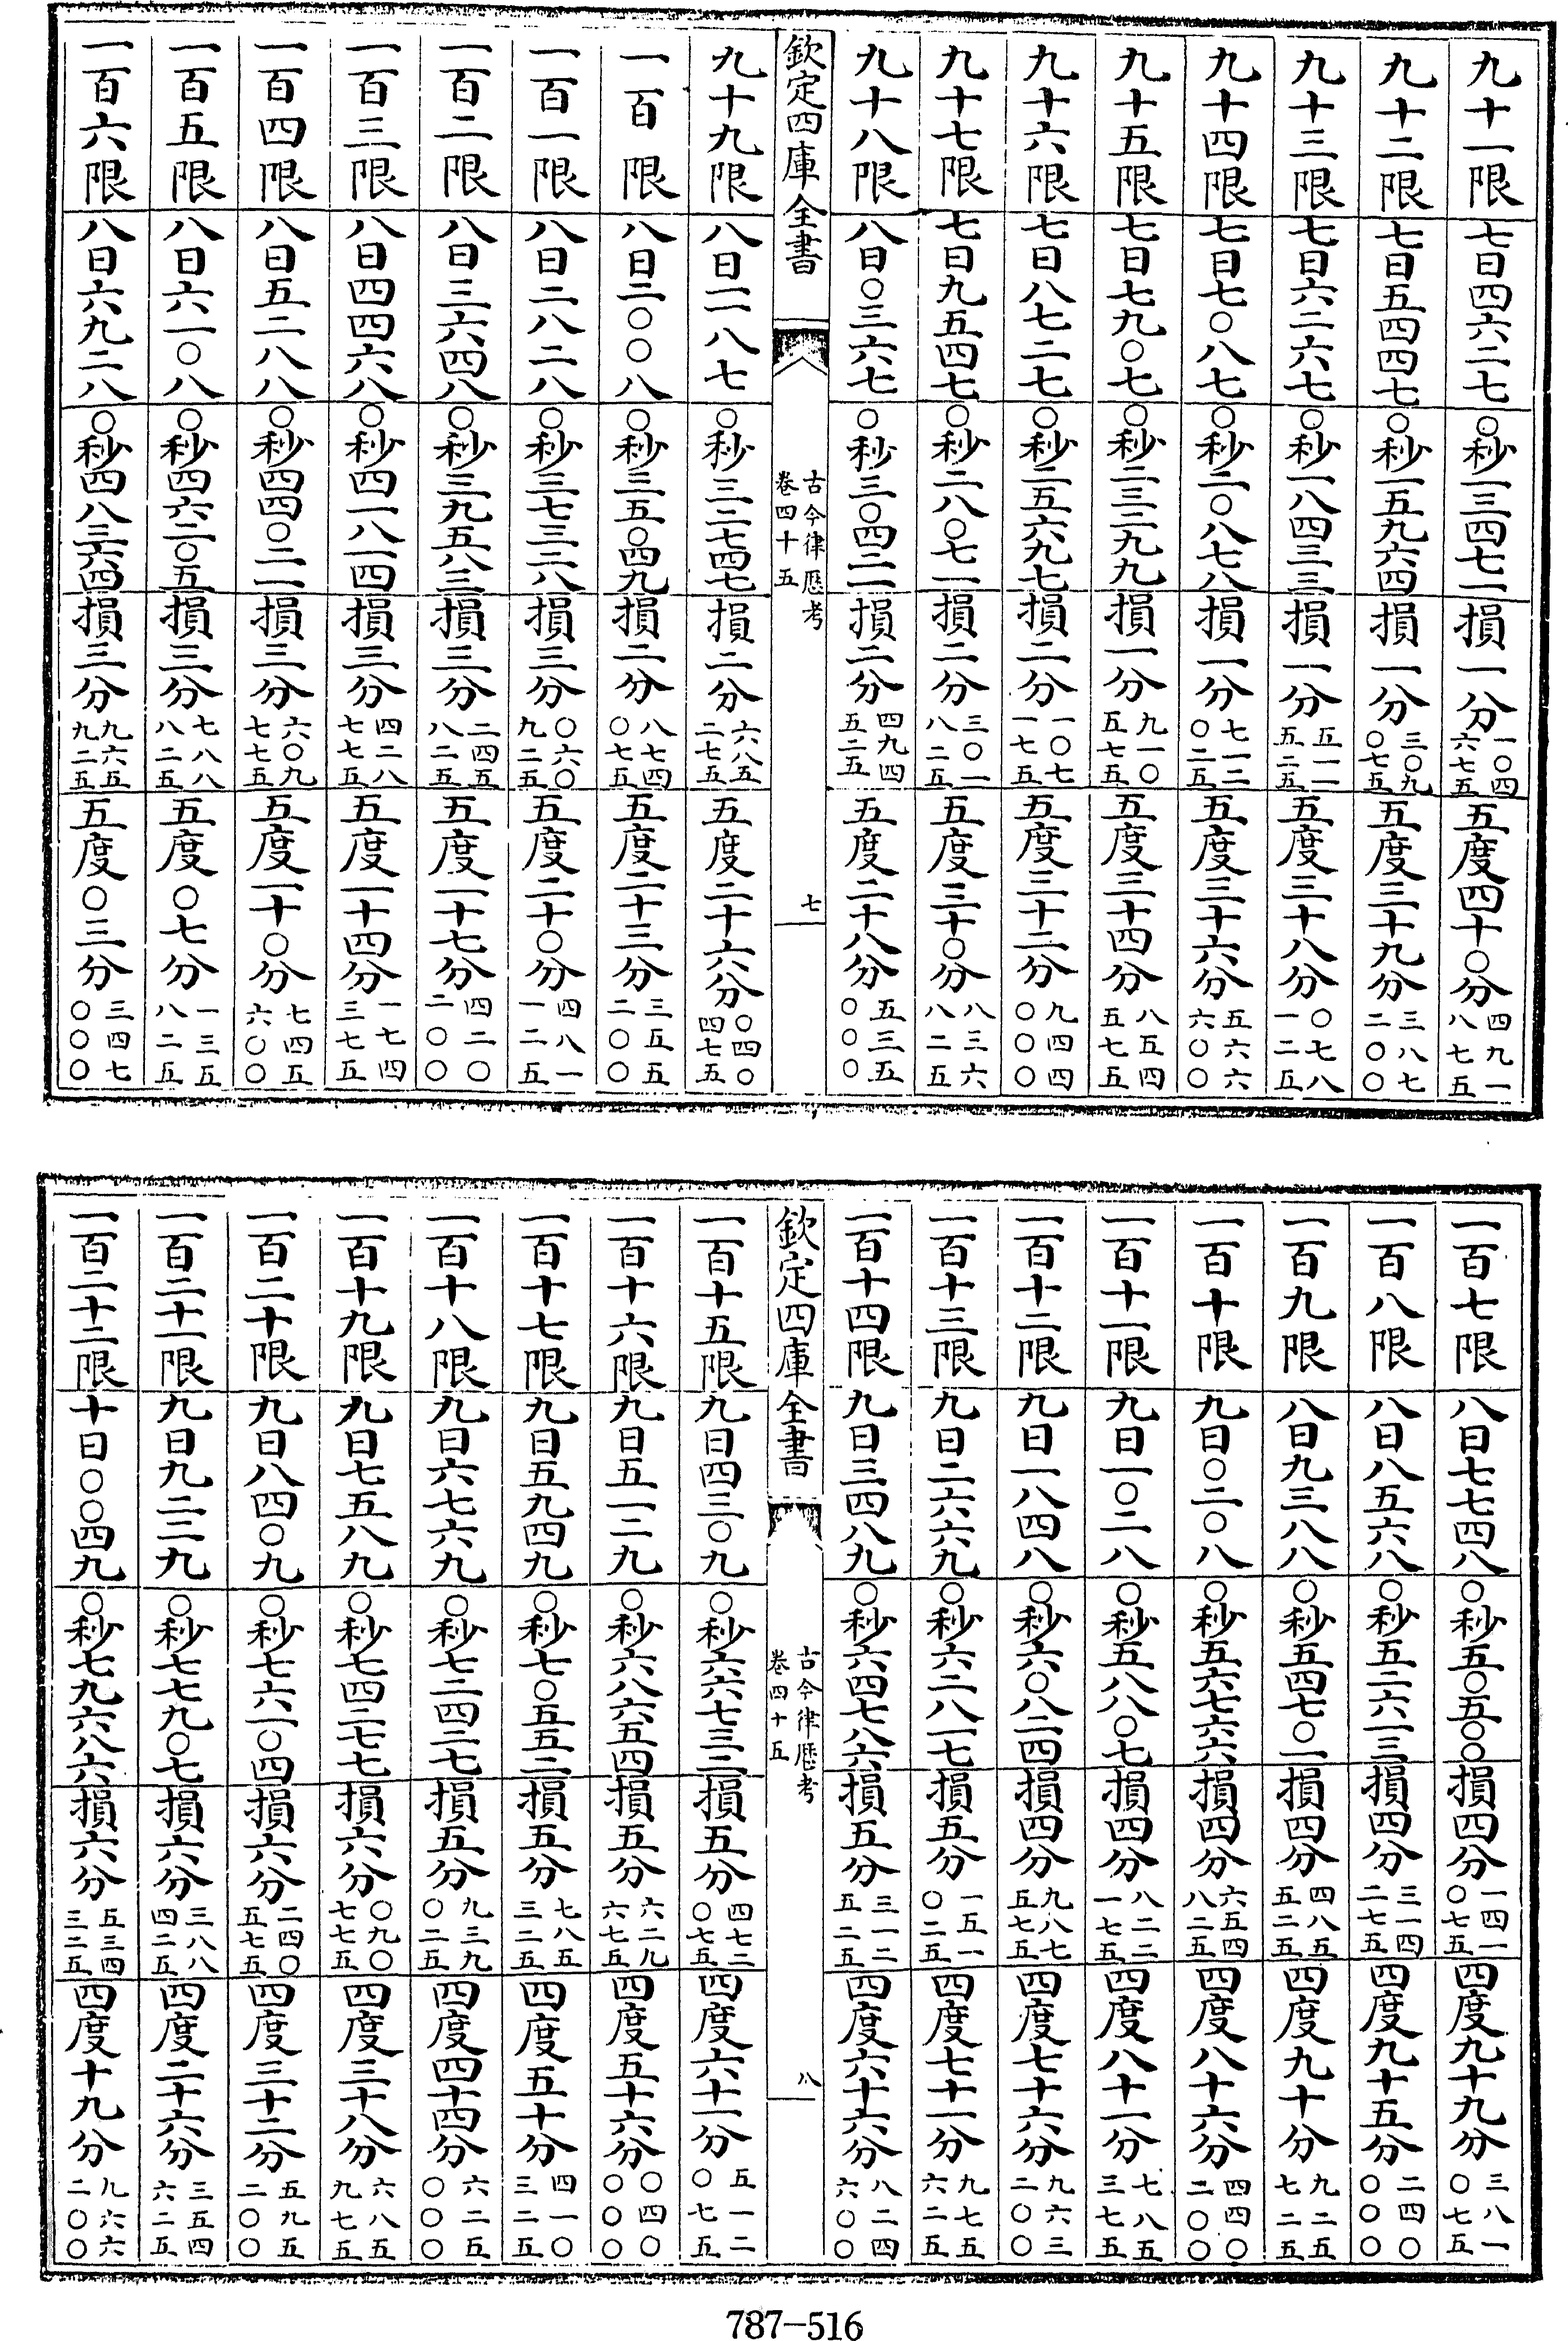 九十一限 七日四六二七 〇秒一三四七一 損一分一〇四六七五 五度四十〇分四九一八七五
九十二限 七日五四四七 〇秒一五九六四 損一分三〇九〇七五 五度三十九分三八七二〇〇
九十三限 七日六二六七 〇秒一八四三三 損一分五一一五二五 五度三十八分〇七八一二五
九十四限 七日七〇八七 〇秒二〇八七八 損一分七一二〇二五 五度三十六分五六六六〇〇
九十五限 七日七九〇七 〇秒二三二九九 損一分九一〇五七五 五度三十四分八五四五七五
九十六限 七日八七二七 〇秒二五六九七 損二分一〇七一七五 五度三十二分九四四〇〇〇
九十七限 七日九五四七 〇秒二八〇七一 損二分三〇一八二五 五度三十〇分八三六八二五
九十八限 八日〇三六七 〇秒三〇四二二 損二分四九四五二五 五度二十八分五三五〇〇〇
欽定四庫全書 古今律歷考卷四十五 七
九十九限 八日一一八七 〇秒三二七四七 損二分六八五二七五 五度二十六分〇四〇四七五
一百限 八日二〇〇八 〇秒三五〇四九 損二分八七四〇七五 五度二十三分三五五二〇〇
一百一限 八日二八二八 〇秒三七三二八 損三分〇六〇九二五 五度二十〇分四八一一二五
一百二限 八日三六四八 〇秒三九五八三 損三分二四五八二五 五度一十七分四二〇二〇〇
一百三限 八日四四六八 〇秒四一八一四 損三分四二八七七五 五度一十四分一七四三七五
一百四限 八日五二八八 〇秒四四〇二一 損三分六〇九七七五 五度一十〇分七四五六〇〇
一百五限 八日六一〇八 〇秒四六二〇五 損三分七八八八二五 五度〇七分一三五八二五
一百六限 八日六九二八 〇秒四八三六四 損三分九六五九二五 五度〇三分三四七〇〇〇
一百七限 八日七七四八 〇秒五〇五〇〇 損四分一四一〇七五 四度九十九分三八一〇七五
一百八限 八日八五六八 〇秒五二六一三 損四分三一四二七五 四度九十五分二四〇〇〇〇
一百九限 八日九三八八 〇秒五四七〇一 損四分四八五五二五 四度九十分九二五七二五
一百十限 九日〇二〇八 〇秒五六七六六 損四分六五四八二五 四度八十六分四四〇二〇〇
一百十一限 九日一〇二八 〇秒五八八〇七 損四分八二二一七五 四度八十一分七八五三七五
一百十二限 九日一八四八 〇秒六〇八二四 損四分九八七五七五 四度七十六分九六三二〇〇
一百十三限 九日二六六九 〇秒六二八一七 損五分一五一〇二五 四度七十一分九七五六二五
一百十四限 九日三四八九 〇秒六四七八六 損五分三一二五二五 四度六十六分八二四六〇〇
欽定四庫全書 古今律歷考卷四十五 八
一百十五限 九日四三〇九 〇秒六六七三二 損五分四七二〇七五 四度六十一分五一二〇七五
一百十六限 九日五一二九 〇秒六八六五四 損五分六二九六七五 四度五十六分〇四〇〇〇〇
一百十七限 九日五九四九 〇秒七〇五五二 損五分七八五三二五 四度五十分四一〇三二五
一百十八限 九日六七六九 〇秒七二四二七 損五分九三九〇二五 四度四十四分六二五〇〇〇
一百十九限 九日七五八九 〇秒七四二七七 損六分〇九〇七七五 四度三十八分六八五九七五
一百二十限 九日八四〇九 〇秒七六一〇四 損六分二四〇五七五 四度三十二分五九五二〇〇
一百二十一限 九日九二二九 〇秒七七九〇七 損六分三八八四二五 四度二十六分三五四六二五
一百二十二限 十日〇〇四九 〇秒七九六八六 損六分五三四三二五 四度十九分九六六二〇〇
787-516